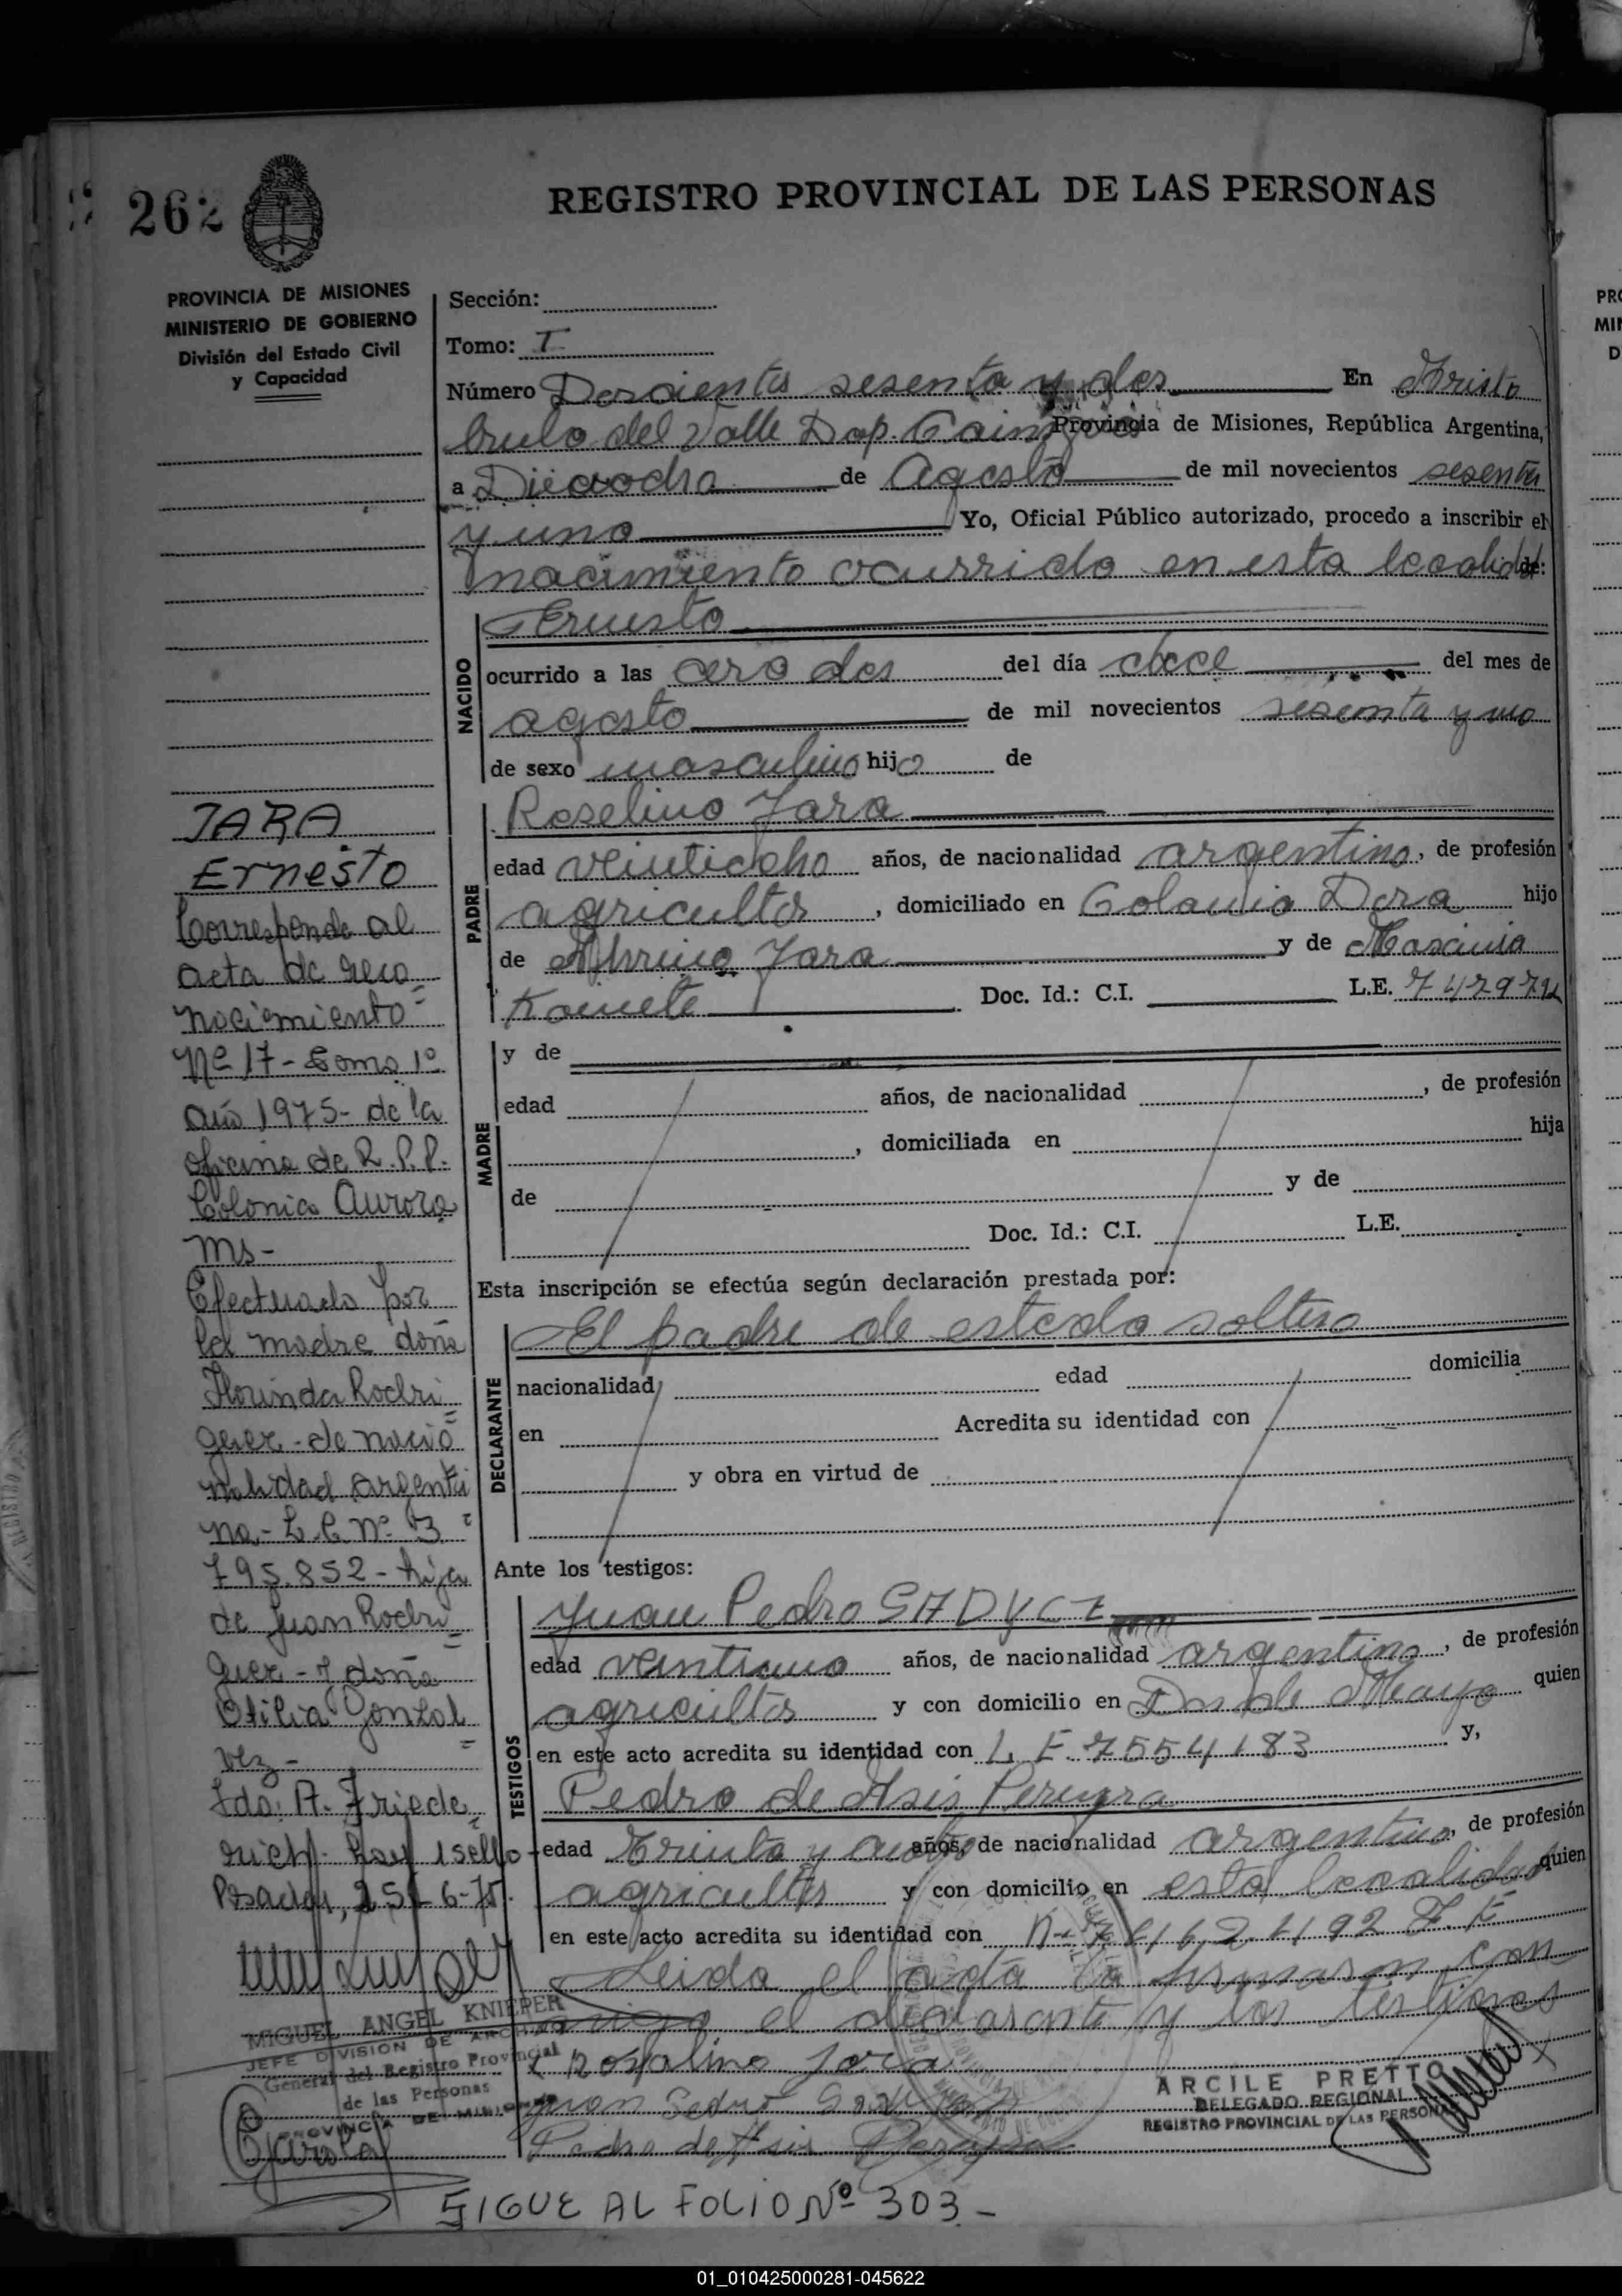 262
REGISTRO PROVINCIAL DE LAS PERSONAS
PROVINCIA DE MISIONES
MINISTERIO DE GOBIERNO
División del Estado Civil
y Capacidad
Sección:
Tomo: I
Número Doscientos sesenta y dos En Aristo
bulo del Valle Dep. Provincia de Misiones, República Argentina,
a Dieciocho de Agosto de mil novecientos sesenta
y uno Yo, Oficial Público autorizado, procedo a inscribir el
nacimiento ocurrido en esta localidad de:
NACIDO
Ernesto
ocurrido a las cero dos del día doce del mes de
agosto de mil novecientos sesenta y uno
de sexo masculino hijo de
PADRE
Roselino Jara
edad veintiocho años, de nacionalidad argentino, de profesión
agricultor, domiciliado en Colonia Dora hijo
de Jara y de
Doc. Id.: C.I. L.E.
MADRE
y de
edad años, de nacionalidad , de profesión
, domiciliada en hija
de y de
Doc. Id.: C.I. L.E.
Esta inscripción se efectúa según declaración prestada por:
DECLARANTE
El padre de estado soltero
nacionalidad edad domicilia
en Acredita su identidad con
y obra en virtud de
Ante los testigos:
TESTIGOS
Juan Pedro
edad veintiuno años, de nacionalidad argentino, de profesión
agricultor y con domicilio en Dos de Mayo quien
en este acto acredita su identidad con L E 7554183 y,
Pedro de Asis Pereyra
edad treinta y años, de nacionalidad argentino, de profesión
agricultor y con domicilio en esta localidad quien
en este acto acredita su identidad con
Leida el acta la firmaron con
migo el declarante y los testigos
Rosalino Jara
Juan Pedro
Pedro de Asis Pereyra
ARCILE PRETTO
DELEGADO REGIONAL
REGISTRO PROVINCIAL DE LAS PERSONAS
JARA
Ernesto
Corresponde al
acta de reco
nocimiento
Nº 17 - Tomo 1º
año 1975 - de la
oficina de R.P.P.
Colonia Aurora
Ms -
Efectuado por
la madre doña
Florinda Rodri
guez - de nacio
nalidad argenti
na - L.C. Nº 3
795.852 - hija
de Juan Rodri
guez - y doña
Otilia Gonzal
vez -
Fdo: A. Friede
rich. Hay 1 sello
Posadas, 25-6-75.
MIGUEL ANGEL KNIEPER
JEFE DIVISION DE ARCHIVO
General del Registro Provincial
de las Personas
PROVINCIA DE MISIONES
SIGUE AL FOLIO Nº 303 -
01_010425000281-045622